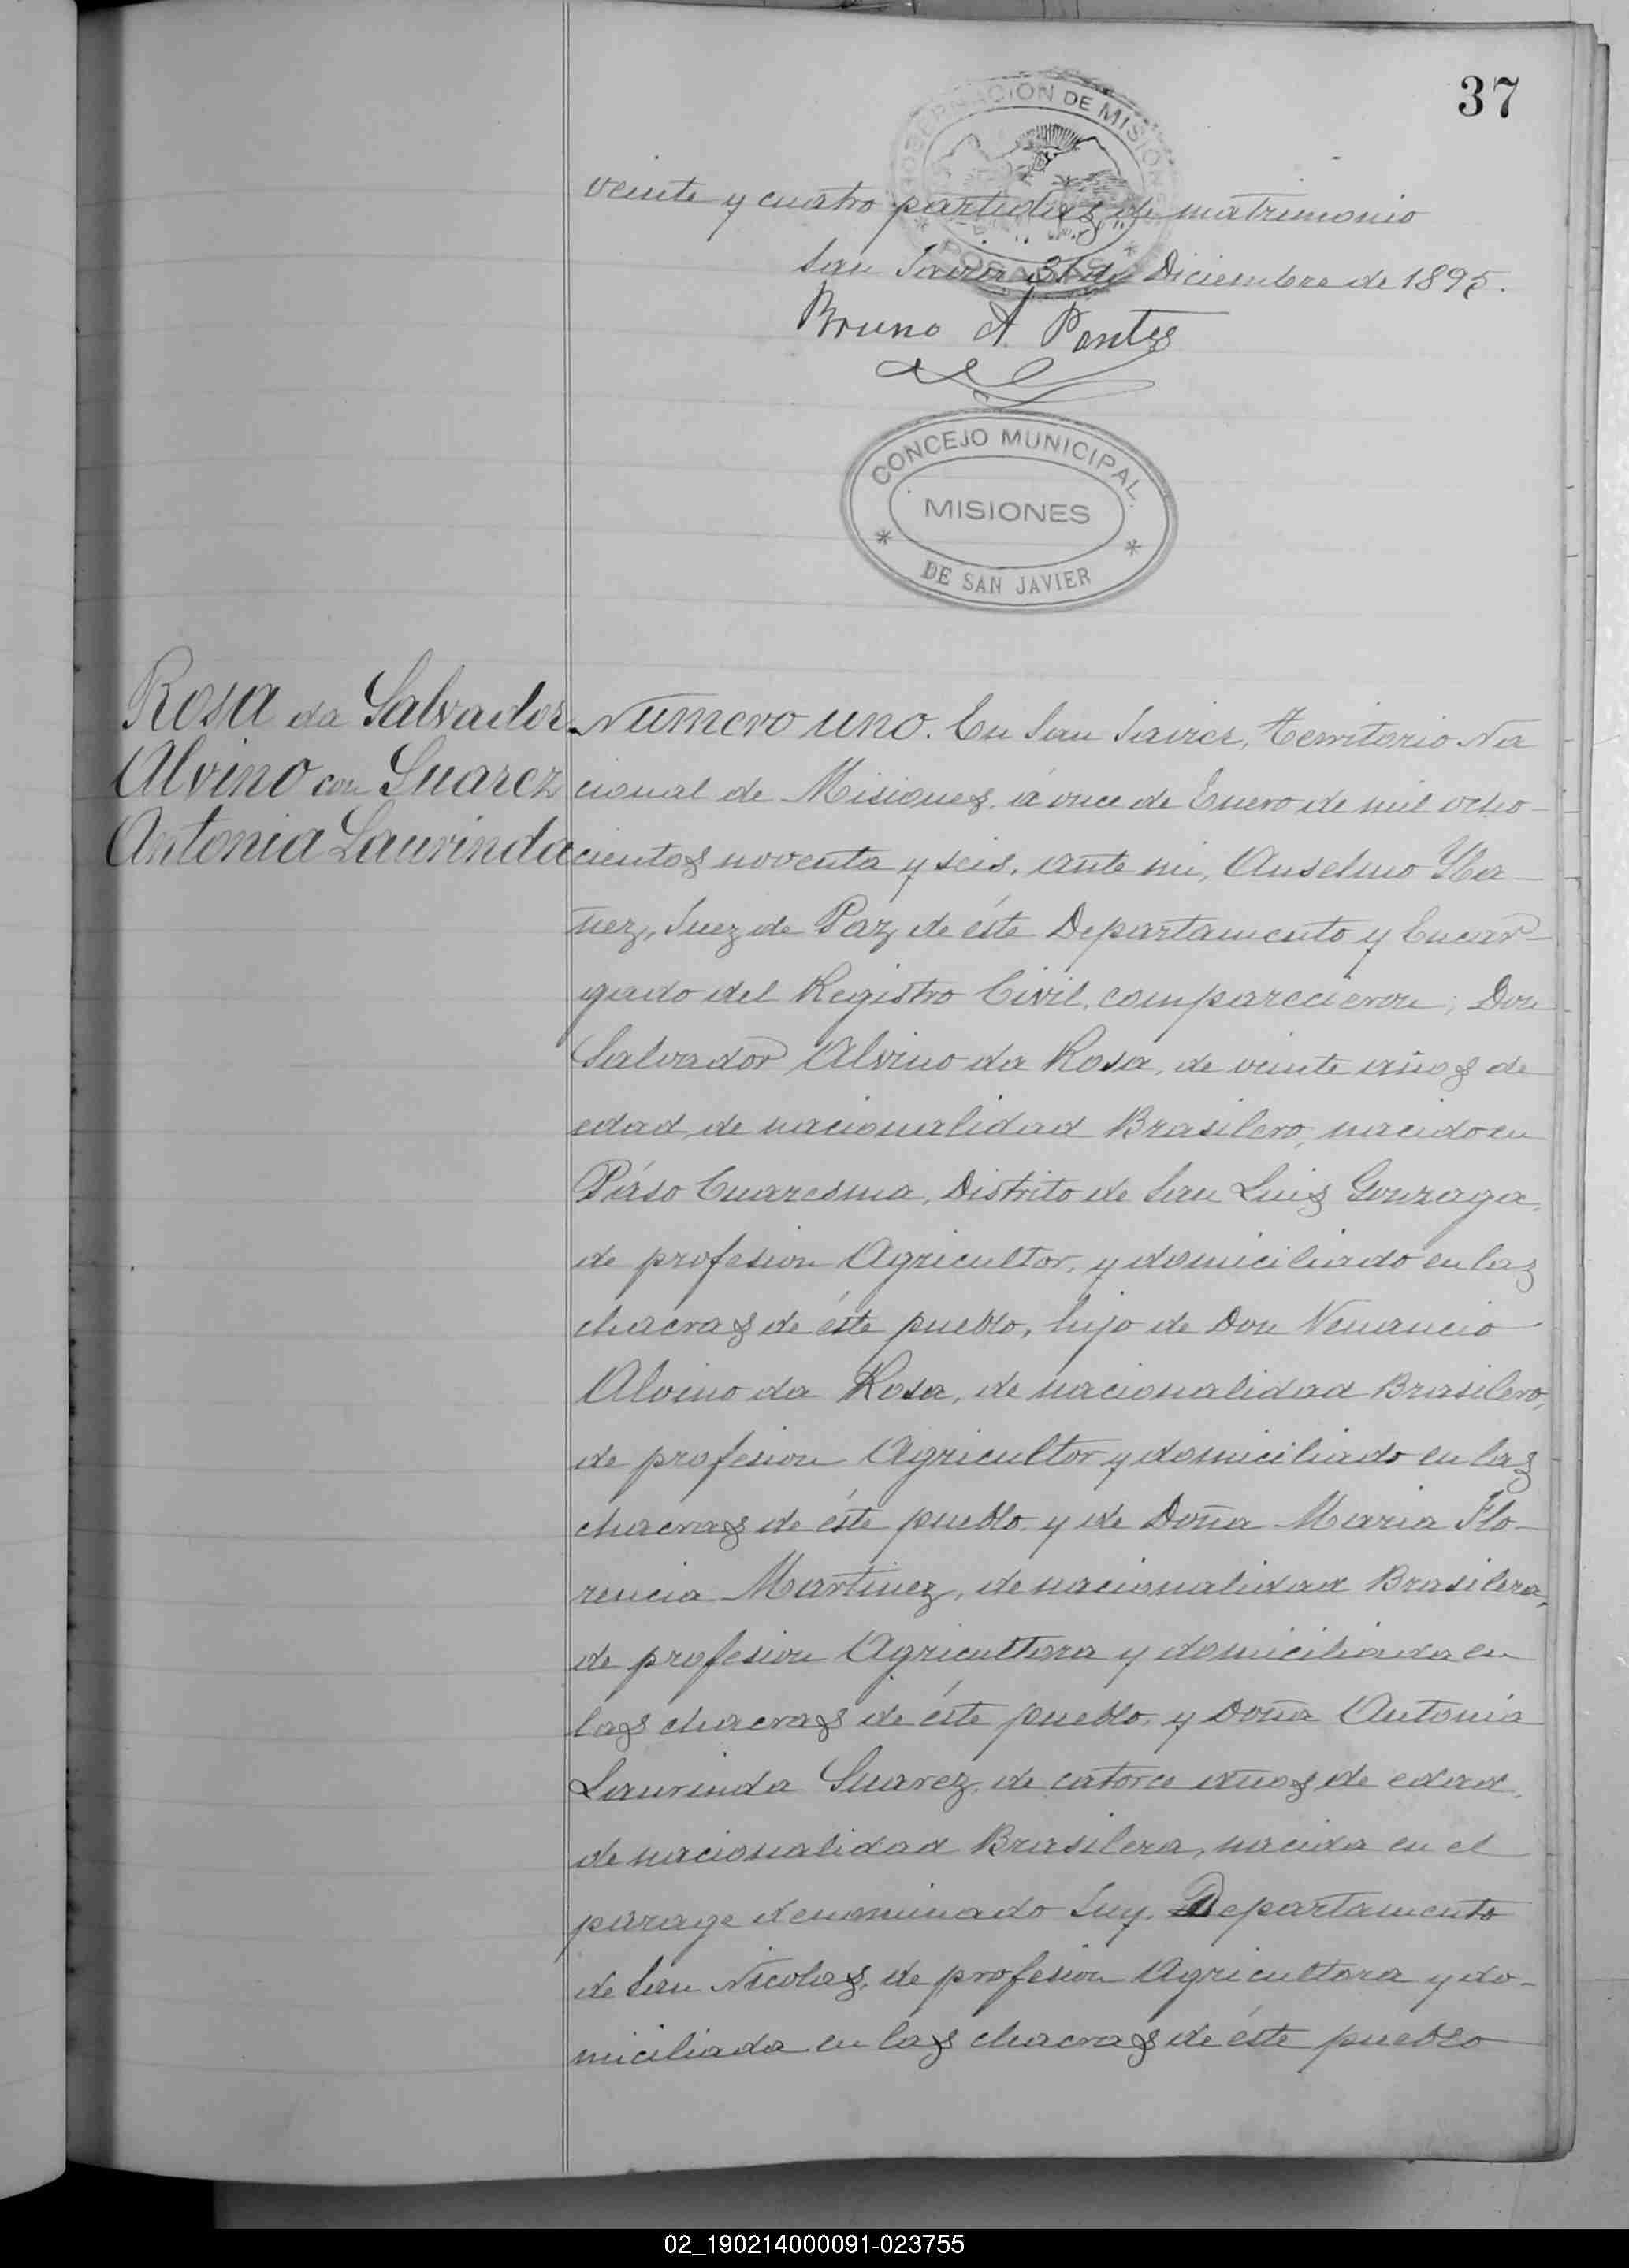 37
GOBERNACION DE MISIONES
* POSADAS *
veinte y cuatro partidas de matrimonio
San Javier 31 de Diciembre de 1895.
Bruno A. Pontes
CONCEJO MUNICIPAL
MISIONES
DE SAN JAVIER
Rosa da Salvador
Alvino con Suarez
Antonia Laurinda
Numero uno. En San Javier, Territorio Na
cional de Misiones, á once de Enero de mil ocho-
cientos noventa y seis, ante mi, Anselmo Yba-
ñez, Juez de Paz de éste Departamento y Encar-
gado del Registro Civil, comparecieron; Don
Salvador Alvino da Rosa, de veinte años de
edad, de nacionalidad Brasilero, nacido en
Páso Cuaresma, Distrito de San Luis Gonzaga,
de profesion Agricultor, y domiciliado en las
chacras de éste pueblo, hijo de Don Venancio
Alvino da Rosa, de nacionalidad Brasilero,
de profesion Agricultor y domiciliado en las
chacras de éste pueblo, y de Doña Maria Flo-
rencia Martinez, de nacionalidad Brasilera,
de profesion Agricultora y domiciliada en
las chacras de éste pueblo, y Doña Antonia
Laurinda Suarez, de catorce años de edad,
de nacionalidad Brasilera, nacida en el
parage denominado Iuy, Departamento
de San Nicolas, de profesion Agricultora y do-
miciliada en las chacras de éste pueblo
02_190214000091-023755